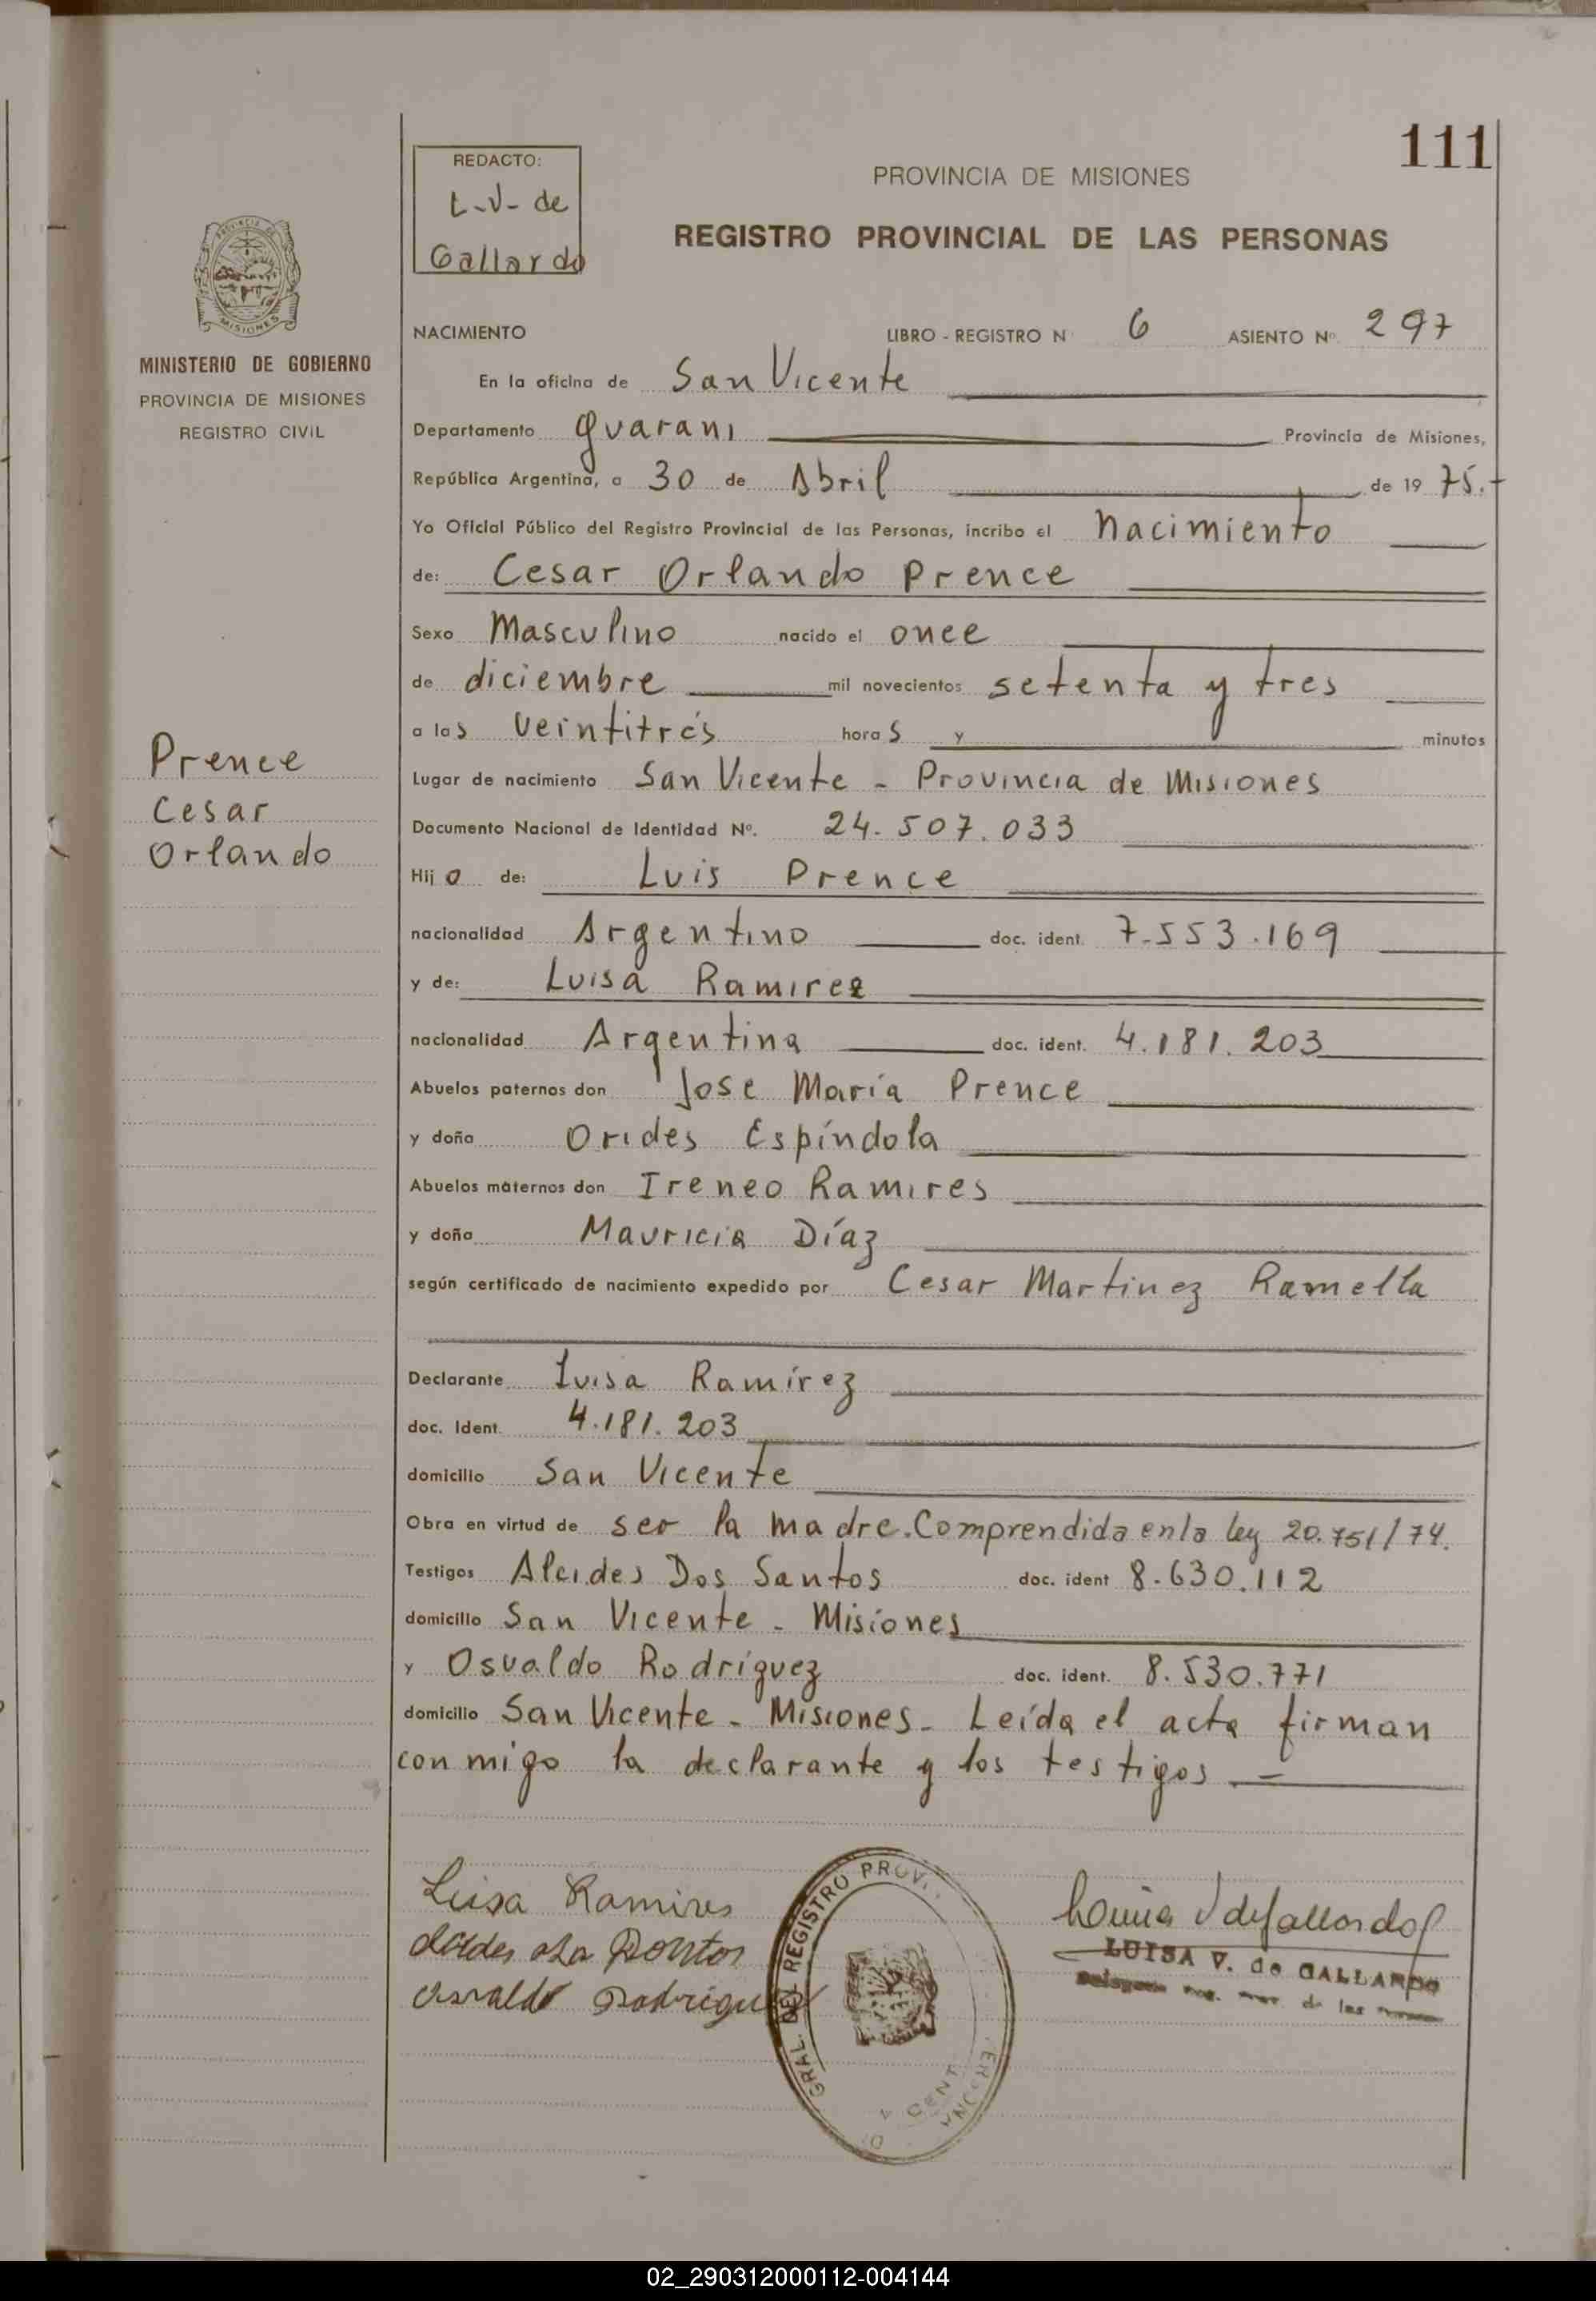 111
REDACTO:
L-V- de
Gallardo
PROVINCIA DE MISIONES
REGISTRO PROVINCIAL DE LAS PERSONAS
MISIONES
MINISTERIO DE GOBIERNO
PROVINCIA DE MISIONES
REGISTRO CIVIL
NACIMIENTO LIBRO - REGISTRO N° 6 ASIENTO Nº 297
En la oficina de San Vicente
Departamento Guarani Provincia de Misiones,
República Argentina, a 30 de Abril de 1975.-
Yo Oficial Público del Registro Provincial de las Personas, incribo el nacimiento
de: Cesar Orlando Prence
Sexo Masculino nacido el once
de diciembre mil novecientos setenta y tres
a las veintitrés horas y minutos
Prence
Cesar
Orlando
Lugar de nacimiento San Vicente - Provincia de Misiones
Documento Nacional de Identidad Nº. 24.507.033
Hijo de: Luis Prence
nacionalidad Argentino doc. ident. 7.553.169
y de: Luisa Ramirez
nacionalidad Argentina doc. ident. 4.181.203
Abuelos paternos don Jose María Prence
y doña Orides Espíndola
Abuelos maternos don Ireneo Ramires
y doña Mauricia Díaz
según certificado de nacimiento expedido por Cesar Martinez Ramella
Declarante Luisa Ramírez
doc. Ident. 4.181.203
domicilio San Vicente
Obra en virtud de ser la madre. Comprendida en la ley 20.751/74.
Testigos Alcides Dos Santos doc. ident 8.630.112
domicilio San Vicente - Misiones
y Osvaldo Rodríguez doc. ident. 8.530.771
domicilio San Vicente - Misiones - Leída el acta firman
conmigo la declarante y los testigos.-
Luisa Ramires
Osvaldo Rodrigue
GRAL. DEL REGISTRO PROV.
LUISA V. de GALLARDO
de las
02_290312000112-004144